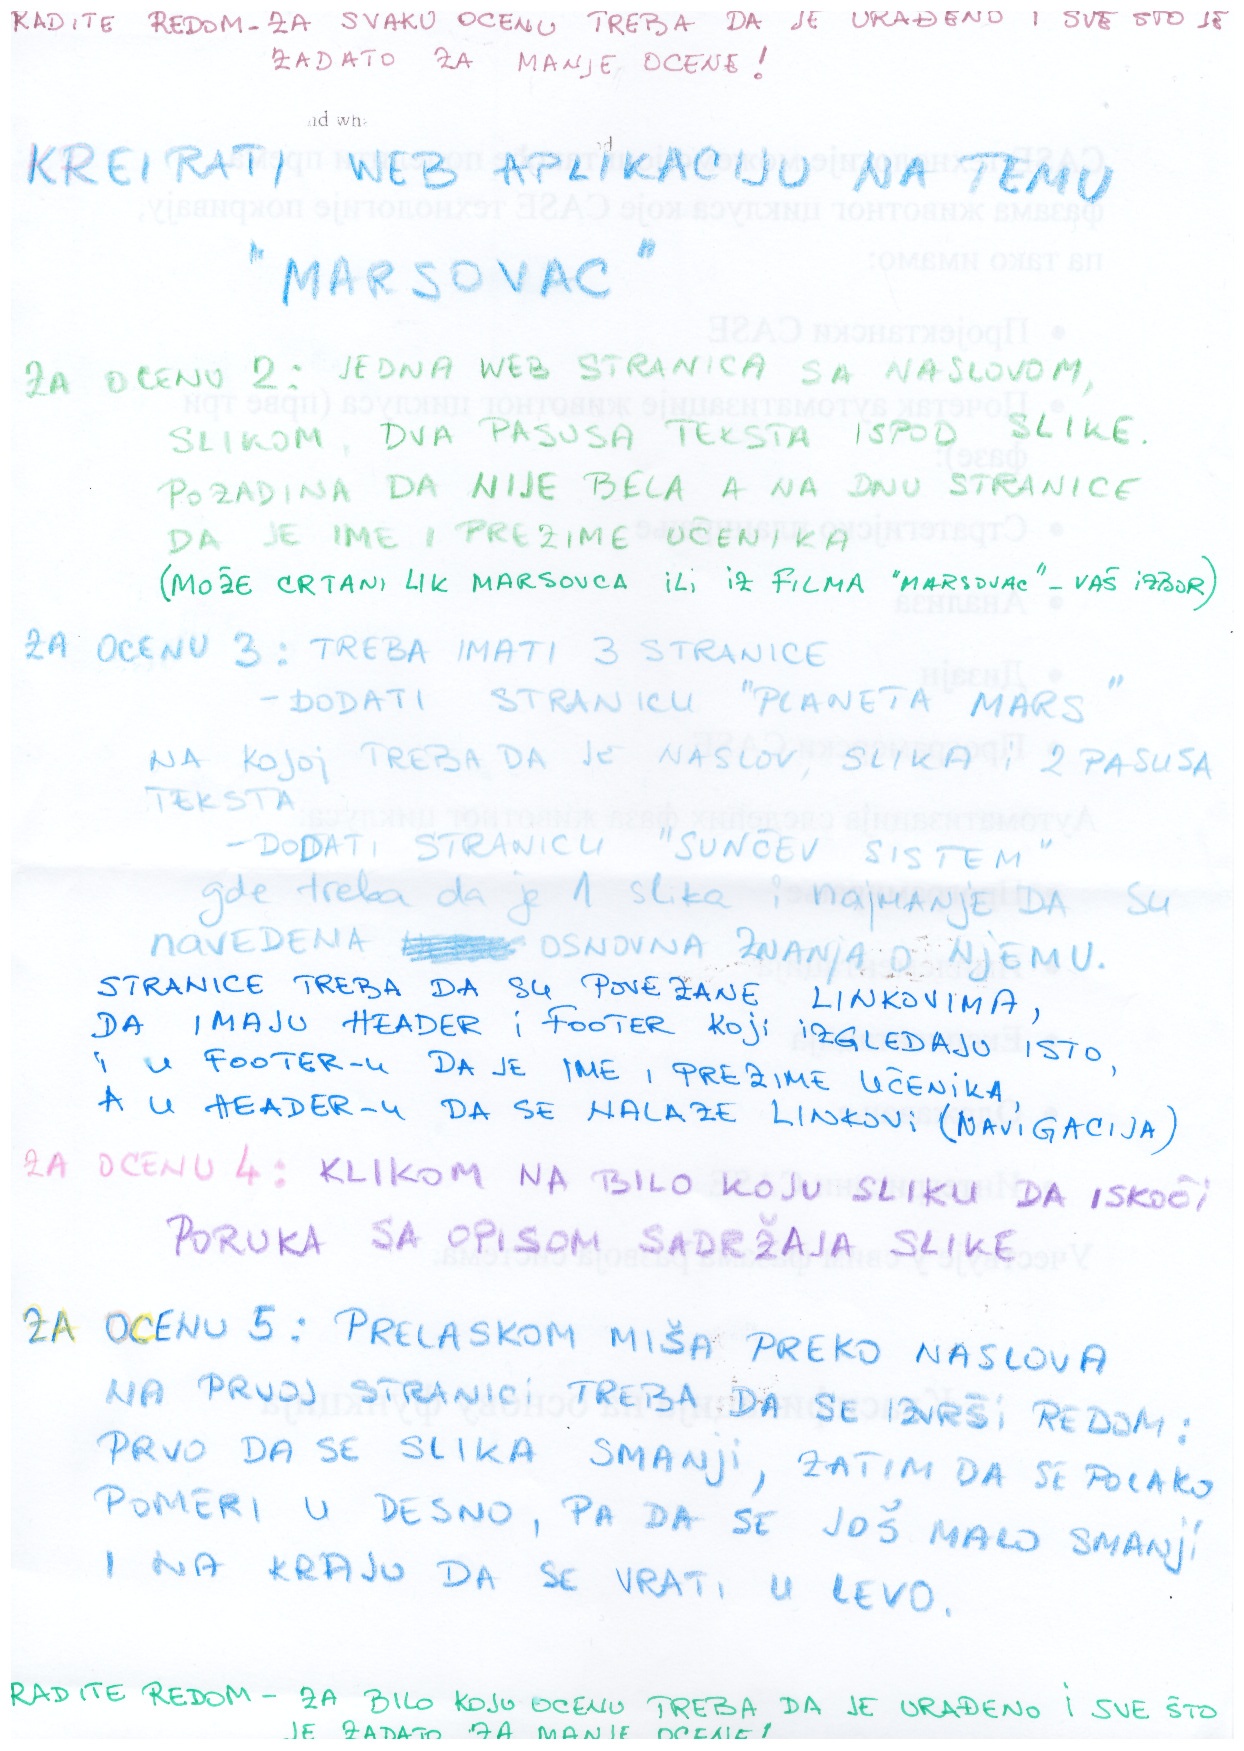 RADITE REDOM - ZA SVAKU OCENU TREBA DA JE URAĐENO I SVE ŠTO JE
ZADATO ZA MANJE OCENE!
KREIRATI WEB APLIKACIJU NA TEMU
"MARSOVAC"
ZA OCENU 2: JEDNA WEB STRANICA SA NASLOVOM,
SLIKOM, DVA PASUSA TEKSTA ISPOD SLIKE.
POZADINA DA NIJE BELA A NA DNU STRANICE
DA JE IME I PREZIME UČENIKA
(MOŽE CRTANI LIK MARSOVCA ILI IZ FILMA "MARSOVAC" - VAŠ IZBOR)
ZA OCENU 3: TREBA IMATI 3 STRANICE
- DODATI STRANICU "PLANETA MARS"
NA KOJOJ TREBA DA JE NASLOV, SLIKA I 2 PASUSA
TEKSTA
- DODATI STRANICU "SUNČEV SISTEM"
gde treba da je 1 slika i najmanje DA SU
NAVEDENA OSNOVNA ZNANJA O NJEMU.
STRANICE TREBA DA SU POVEZANE LINKOVIMA,
DA IMAJU HEADER i FOOTER KOJI IZGLEDAJU ISTO,
i U FOOTER-u DA JE IME I PREZIME UČENIKA,
A U HEADER-u DA SE NALAZE LINKOVI (NAVIGACIJA)
ZA OCENU 4: KLIKOM NA BILO KOJU SLIKU DA ISKOČI
PORUKA SA OPISOM SADRŽAJA SLIKE
ZA OCENU 5: PRELASKOM MIŠA PREKO NASLOVA
NA PRVOJ STRANICI TREBA DA SE IZVRŠI REDOM:
PRVO DA SE SLIKA SMANJI, ZATIM DA SE POLAKO
POMERI U DESNO, PA DA SE JOŠ MALO SMANJI
I NA KRAJU DA SE VRATI U LEVO.
RADITE REDOM - ZA BILO KOJU OCENU TREBA DA JE URAĐENO I SVE ŠTO
JE ZADATO ZA MANJE OCENE!